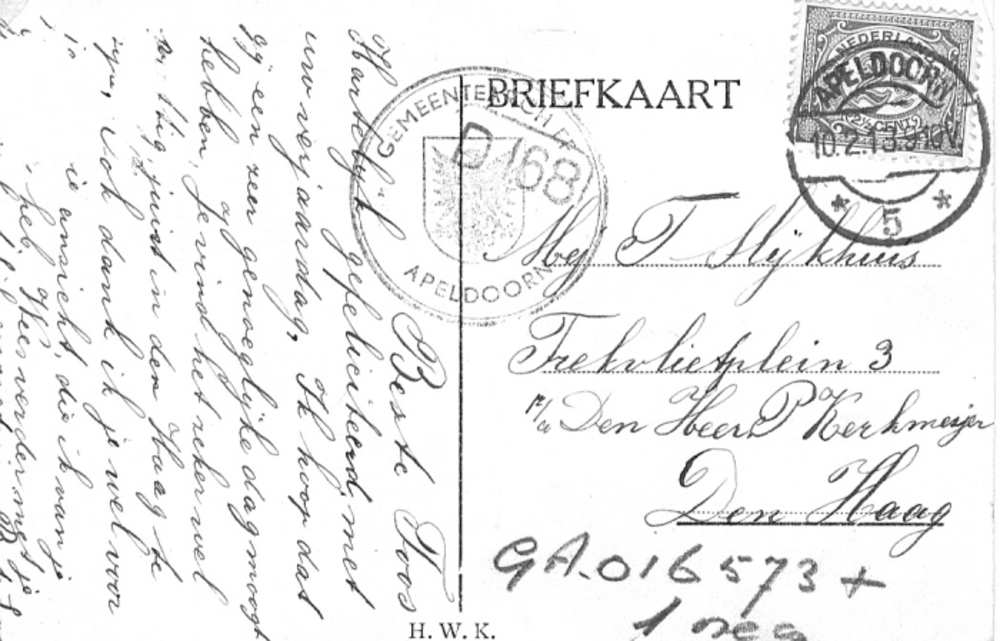 BRIEFKAART
NEDERLAND
2½ CENT
APELDOORN
10.2.13.9-10V
* 5 *
GEMEENTE
APELDOORN
D 168
Mej T Slijkhuis
Trekvlietplein 3
p/a Den Heer P Kerkmeijer
Den Haag
GA.016573 +
1 neg
H. W. K.
Beste Toos
Hartelijk gefeliciteerd met
uw verjaardag, Ik hoop dat
gij een zeer genoeglijke dag moogt
hebben, je vind het zeker wel
juist in den Haag te
zijn, Ook dank ik je wel voor
ansicht, die ik van je
heb, verder met je